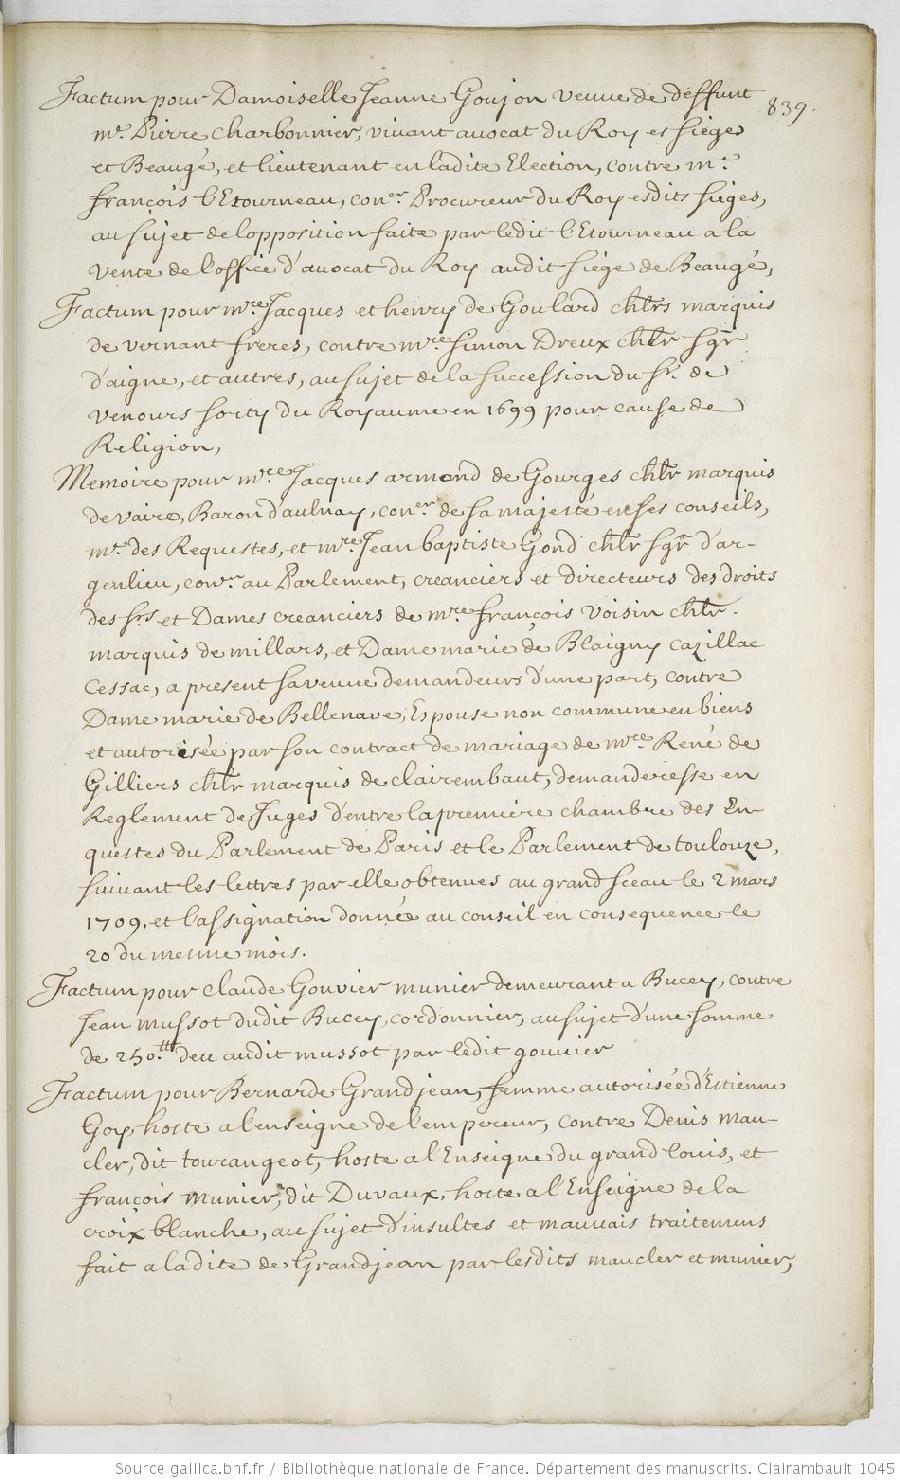 839.
Factum pour Damoiselle Jeanne Goujon veuve de deffunt
mr. Pierre Charbonnier, vivant avocat du Roy es siege
et Beaugé, et lieutenant en ladite Election, contre mr.
françois l'Etourneau, coner. Procureur du Roy esdits sieges,
au sujet de l'opposition faite par ledit l'Etourneau a la
vente de l'office d'avocat du Roy audit siege de Beaugé,
Factum pour mre. Jacques et henry de Goulard chlrs marquis
de vernant freres, contre mre. simon Dreux chlr sgr
d'aigne, et autres, au sujet de la succession du sr. de
venours sorty du Royaume en 1699 pour cause de
Religion,
Memoire pour mre. Jacques armond de Gourges chlr marquis
de vaire, Baron d'aulnay, coner. de sa majesté en ses conseils,
mr. des Requestes, et mre. Jean baptiste Gond chlr sgr d'ar-
genlieu, coner. au Parlement, creanciers et directeurs des droits
des srs et Dames creanciers de mre. françois voisin chlr.
marquis de millars, et Dame marie de Blaigny cazillac
Cessac, a present sa veuve demandeurs d'une part, contre
Dame marie de Bellenave, Espouse non commune en biens
et autorisée par son contract de mariage de mre. René de
Gilliers chlr marquis de clairembaut, demanderesse en
Reglement de Juges d'entre la premiere chambre des En-
questes du Parlement de Paris et le Parlement de toulouze,
suivant les lettres par elle obtenues au grand sceau le 2 mars
1709, et l'assignation donnée au conseil en consequence le
20 du mesme mois.
Factum pour claude Gouvier munier demeurant a Bucey, contre
Jean mussot dudit Bucey, cordonnier, au sujet d'une somme
de 250.tt deu audit mussot par ledit gouvier
Factum pour Bernarde Grandjean, femme autorisée d'Estienne
Goy, hoste a l'enseigne de l'empereur, contre Denis mau-
cler, dit tourangeot, hoste a l'Enseigne du grand louis, et
françois munier, dit Duvaux, hoste a l'Enseigne de la
croix blanche, au sujet d'insultes et mauvais traitemens
fait a ladite de Grandjean par lesdits maucler et munier,
Source gallica.bnf.fr / Bibliothèque nationale de France. Département des manuscrits. Clairambault 1045